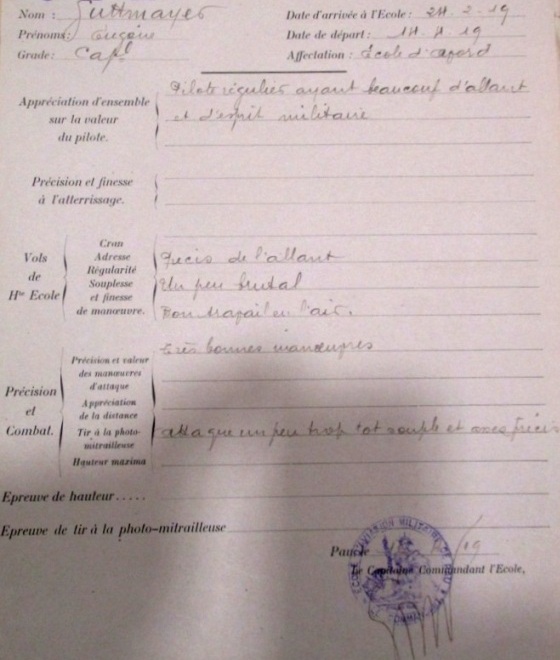 Nom : Guttmayer Date d'arrivée à l'Ecole : 24. 2. 19
Prénoms : Eugène Date de départ : 14. 4. 19
Grade : Capl Affectation : Ecole d'Avord
Appréciation d'ensemble
sur la valeur
du pilote.
Pilote régulier ayant beaucoup d'allant
et d'esprit militaire
Précision et finesse
à l'atterrissage.
Vols
de
Hte Ecole
Cran
Adresse
Régularité
Souplesse
et finesse
de manœuvre.
Précis de l'allant
Un peu brutal
Bon travail en l'air.
Précision
et
Combat.
Précision et valeur
des manœuvres
d'attaque
Appréciation
de la distance
Tir à la photo-
mitrailleuse
Hauteur maxima
très bonnes manœuvres
attaque un peu trop tot souple et assez précis
Epreuve de hauteur.....
Epreuve de tir à la photo-mitrailleuse
Pau, le /19
Le Capitaine Commandant l'Ecole,